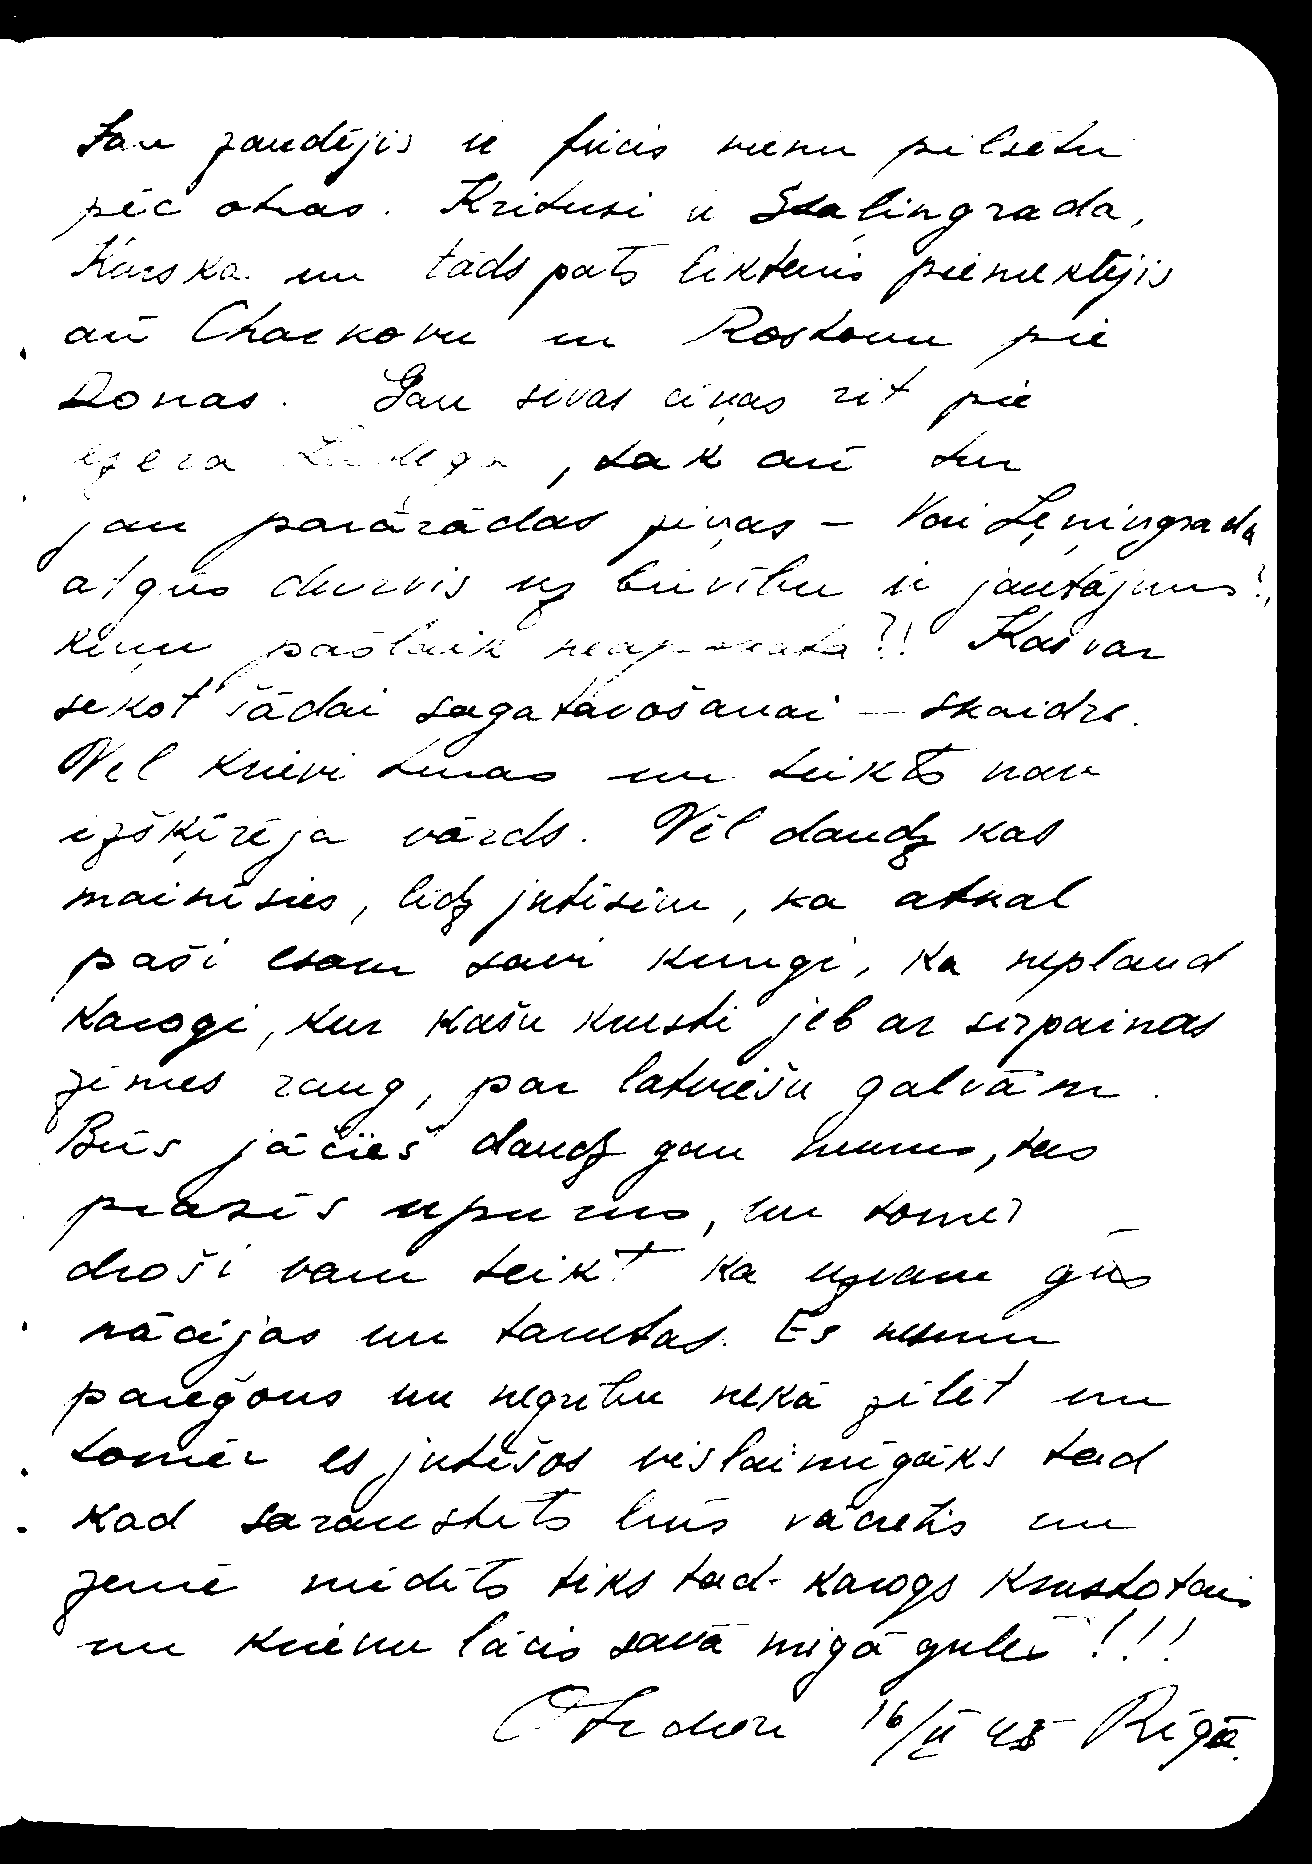 Jau zaudējis ir fricis vienu pilsētu
pēc otras. Kritusi ir Staļingrada,
Kurska un tāds pats liktenis piemeklējis
arī Charkovu un Rostovu pie
Donas. Gan sīvas cīņas rit pie
ezera Ladega, tak arī tur
jau parārādas ziņas – Vai Ļeņingrada
atgūs durvis uz brīvību ir jautājums?,
kuŗu pašlaik neapskata?! Kas var
sekot šādai sagatavošanai – skaidrs.
Vēl krievi turas un teikts nav
izšķirēja vārds. Vēl daudz kas
mainīsies, līdz jutīsim, ka atkal
paši esam savi kungi, ka nepland
karogi, kur kašu krusti jeb ar sirpainas
zīmes raug, par latviešu galvām.
Būs jācieš daudz gan mums, tas
prasīs upurus, un tomēr
droši varu teikt ka uzvaru gūs
nācijas un tautas. Es nesmu
pareģons un negribu nekā zīlēt un
tomēr es jutīšos vislaimīgāks tad
kad saraustīts būs vācietis un
zemē mīdīts tiks tad karogs krustotais
un krievu lācis savā migā gulēs!!!
16/II 43 Rīgā.